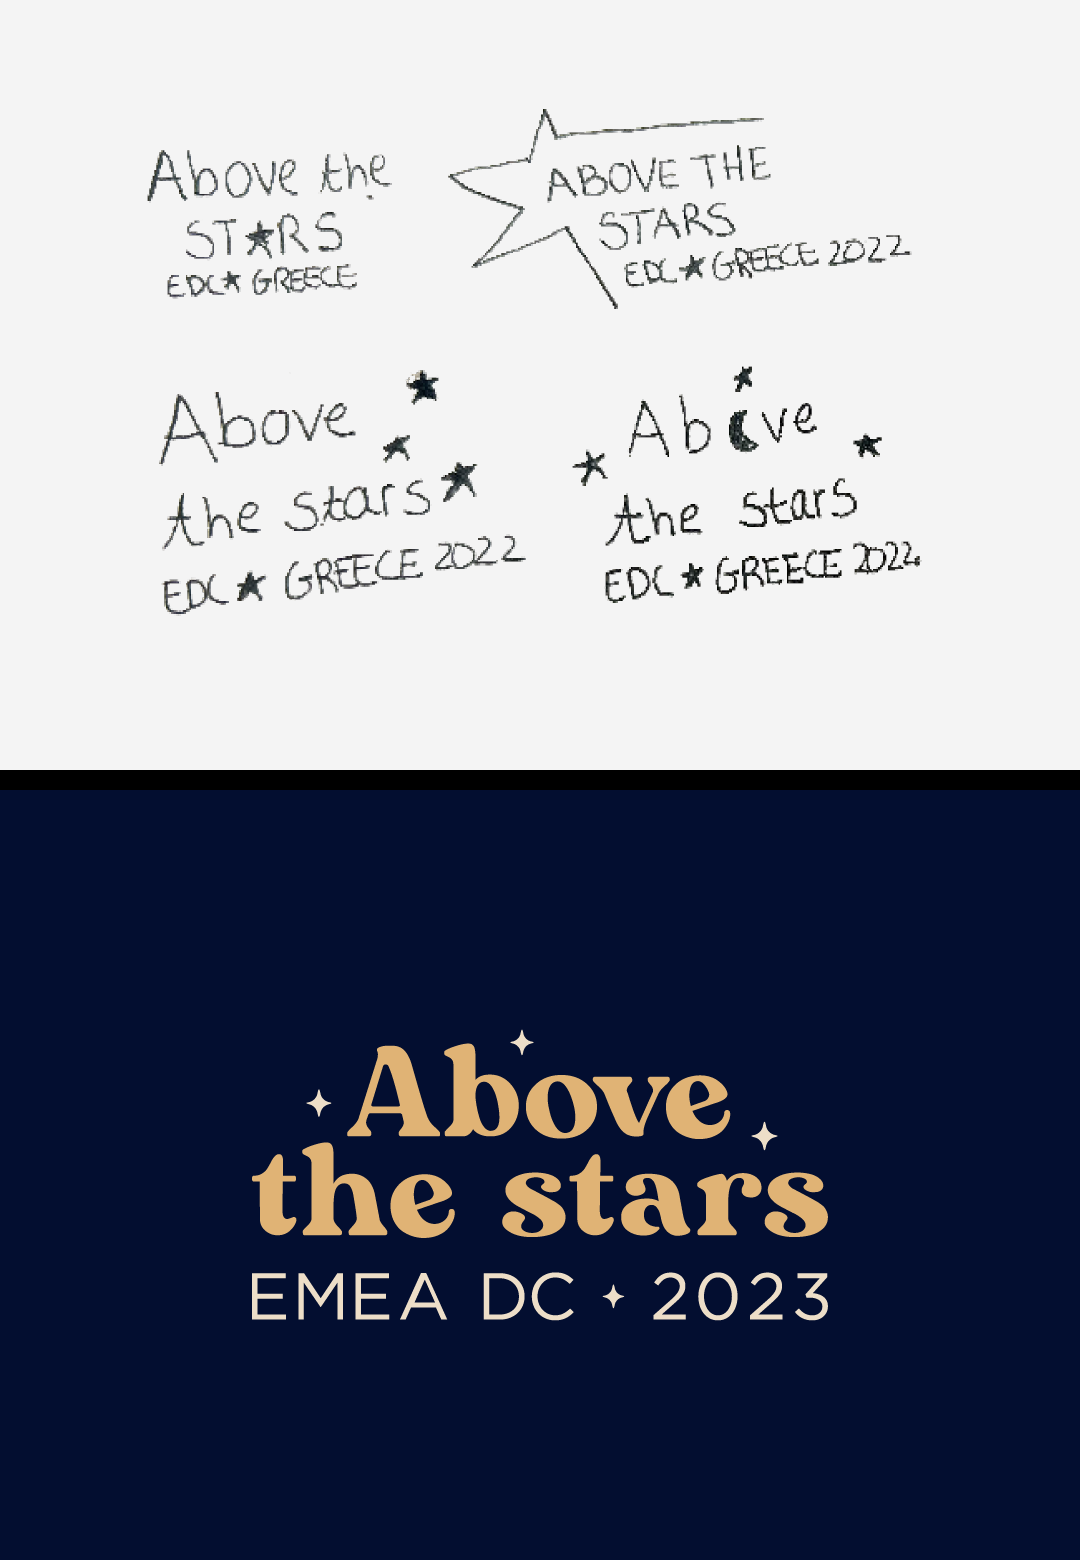 Above the
ST★RS
EDC★GREECE
ABOVE THE
STARS
EDC★GREECE 2022
Above
the stars
EDC★GREECE 2022
Ab☾ve
the stars
EDC★GREECE 2022
Above
the stars
EMEA DC ✦ 2023